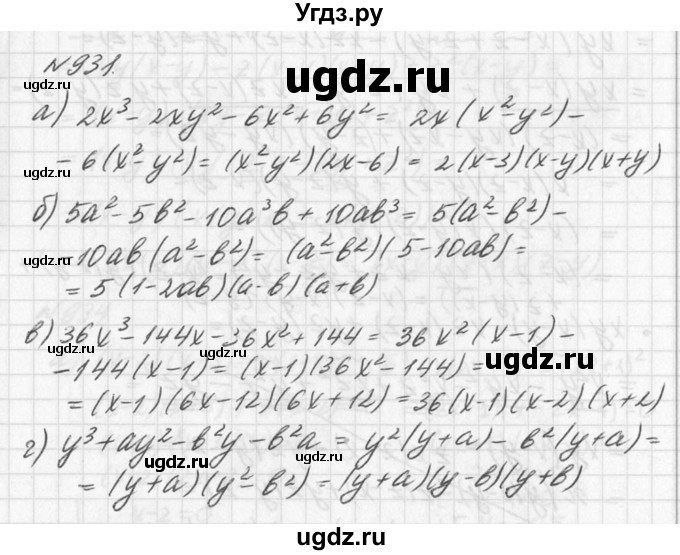 Угдз.ру
№931.
ugdz.ru
ugdz.ru
а) 2x³ - 2xy² - 6x² + 6y² = 2x(x² - y²) -
- 6(x² - y²) = (x² - y²)(2x - 6) = 2(x - 3)(x - y)(x + y)
ugdz.ru
б) 5a² - 5b² - 10a³b + 10ab³ = 5(a² - b²) -
- 10ab(a² - b²) = (a² - b²)(5 - 10ab) =
ugdz.ru
= 5(1 - 2ab)(a - b)(a + b)
в) 36x³ - 144x - 36x² + 144 = 36x²(x - 1) -
- 144(x - 1) = (x - 1)(36x² - 144) =
ugdz.ru
= (x - 1)(6x - 12)(6x + 12) = 36(x - 1)(x - 2)(x + 2)
ugdz.ru
г) y³ + ay² - b²y - b²a = y²(y + a) - b²(y + a) =
= (y + a)(y² - b²) = (y + a)(y - b)(y + b)
ugdz.ru
ugdz.ru